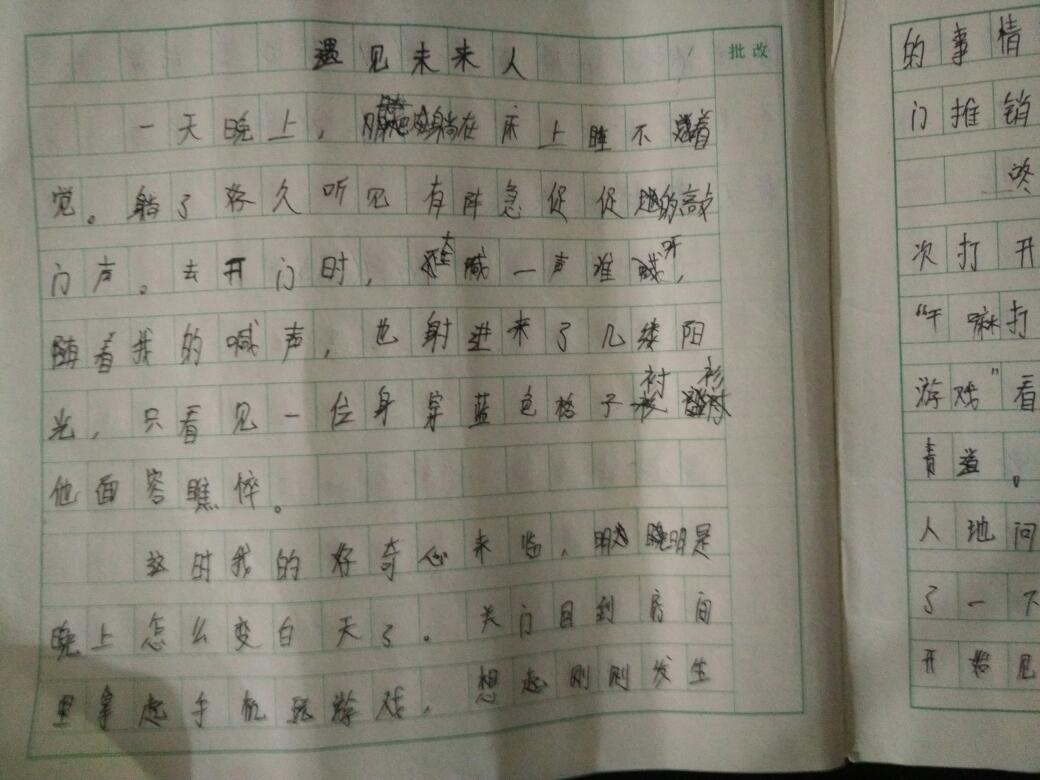 遇见未来人
批改
一天晚上，躺在床上睡不着
觉。躺了好久听见有阵急促促的敲
门声。去开门时，大喊一声谁呀，
随着我的喊声，也射进来了几缕阳
光，只看见一位身穿蓝色格子衬衫
他面容瞧悴。
这时我的好奇心来临，明明是
晚上怎么变白天了。关门回到房间
里拿起手机玩游戏，想起刚刚发生
的事情
门推销
咚
次打开
“干嘛打
游戏”看
责道。
人地问
了一下
开始见